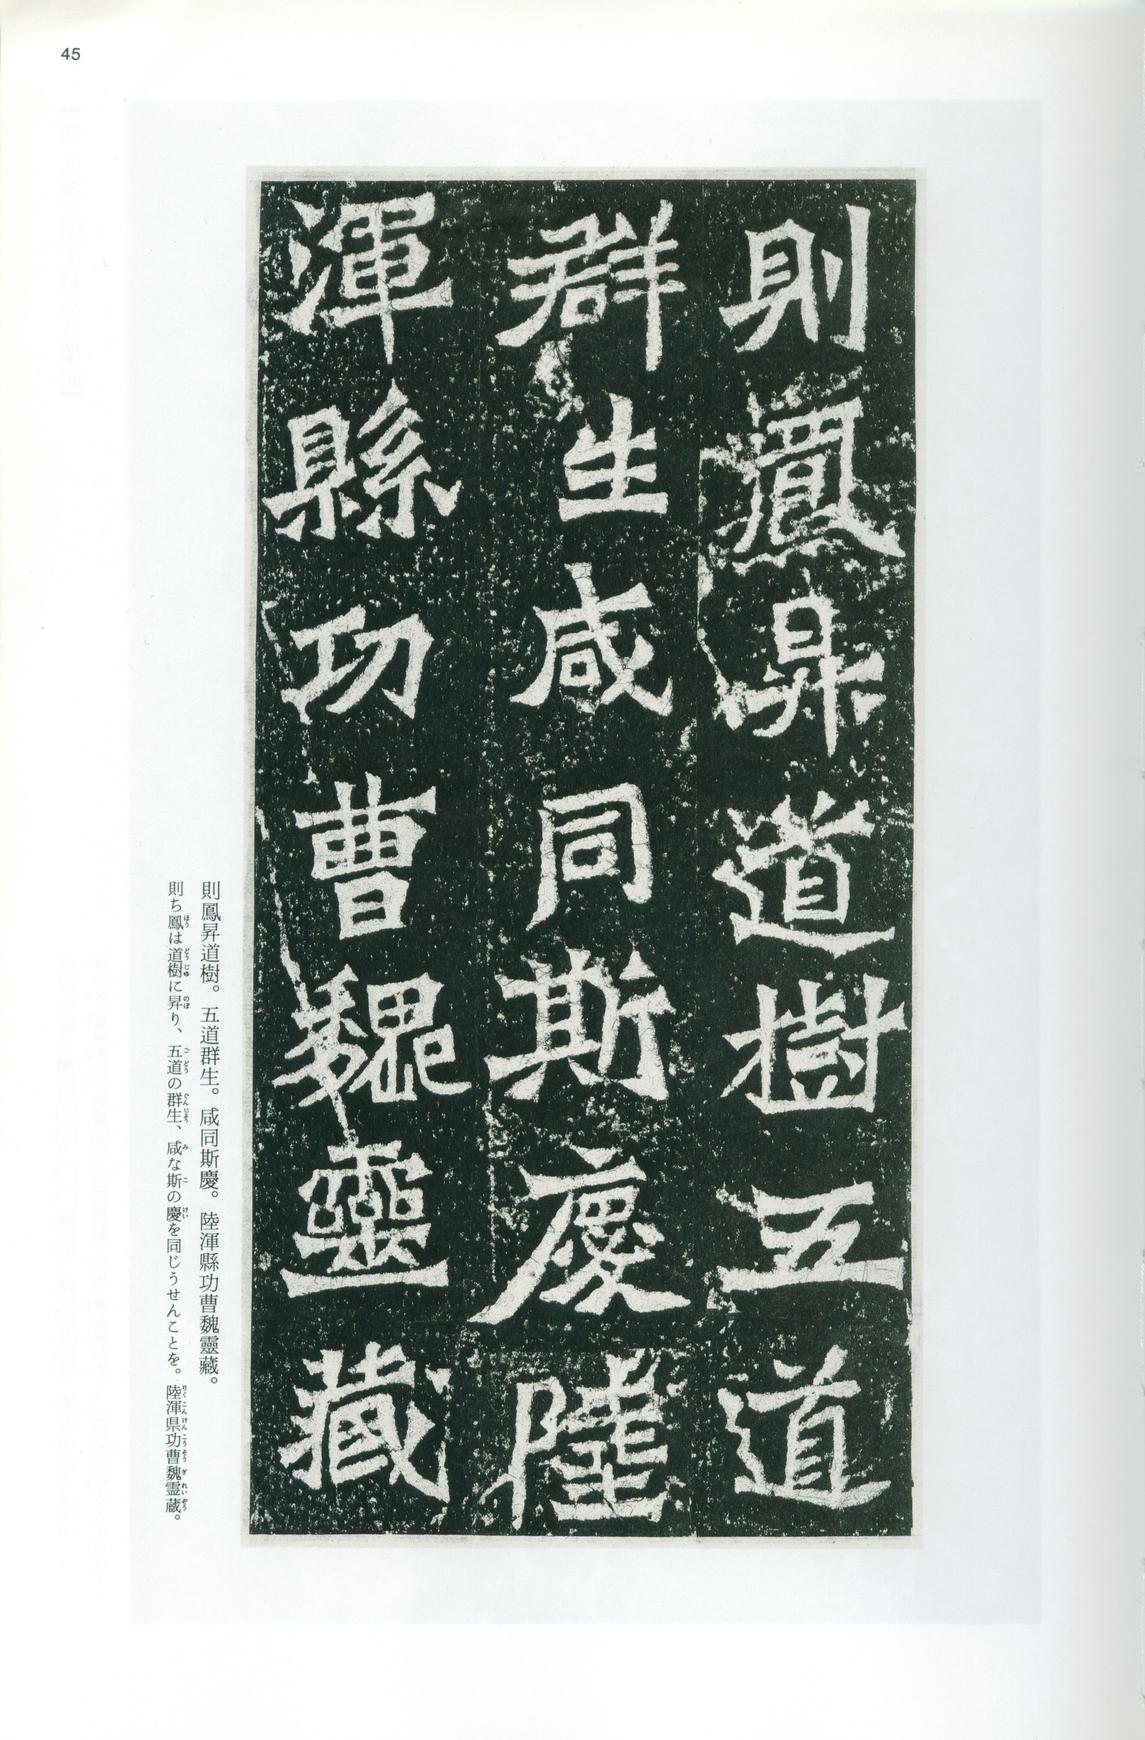 45
則鳳昇道樹五道
群生咸同斯慶陸
渾縣功曹魏靈藏
則鳳昇道樹。五道群生。咸同斯慶。陸渾縣功曹魏靈藏。
則ち鳳は道樹に昇り、五道の群生、咸な斯の慶を同じうせんことを。陸渾県功曹魏霊蔵。